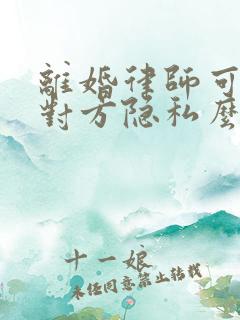 離婚律師可
對方隐私麼
十一娘
未经同意禁止转载